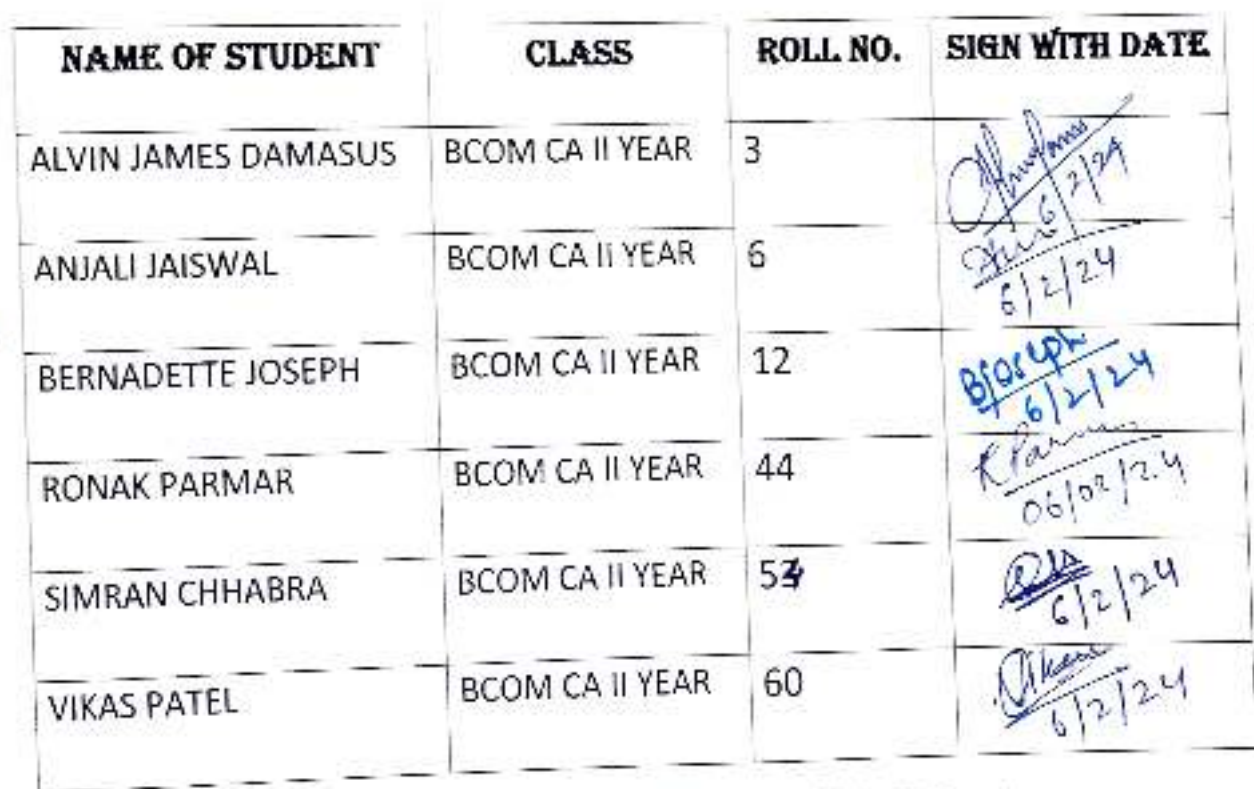 NAME OF STUDENT CLASS ROLL NO. SIGN WITH DATE
ALVIN JAMES DAMASUS BCOM CA II YEAR 3
6/2/24
ANJALI JAISWAL BCOM CA II YEAR 6
6/2/24
BERNADETTE JOSEPH BCOM CA II YEAR 12 BJoseph
6/2/24
RONAK PARMAR BCOM CA II YEAR 44
06/02/24
SIMRAN CHHABRA BCOM CA II YEAR 54
6/2/24
VIKAS PATEL BCOM CA II YEAR 60
6/2/24